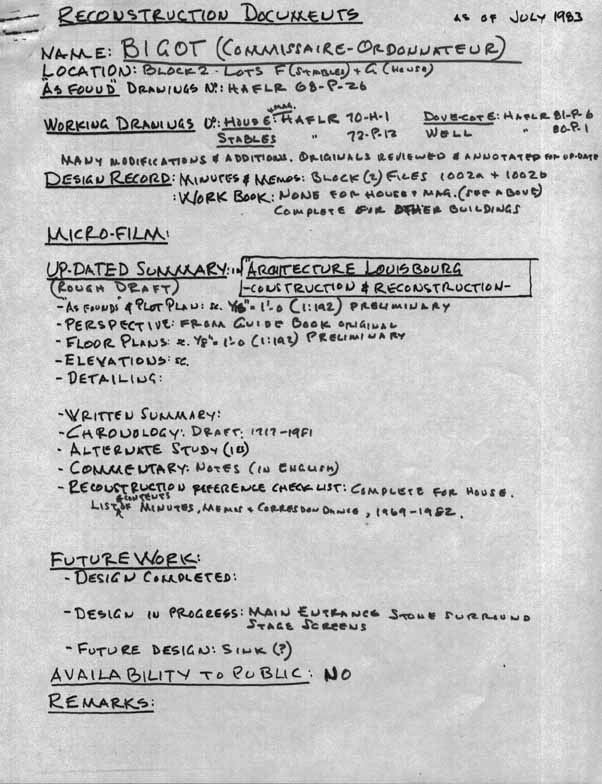 RECONSTRUCTION DOCUMENTS AS OF JULY 1983
NAME: BIGOT (COMMISSAIRE-ORDONNATEUR)
LOCATION: BLOCK 2 - LOTS F (STABLES) + G (HOUSE)
"AS FOUND" DRAWINGS No: HAFLR 68-P-26
& MAG.
WORKING DRAWINGS No: HOUSE: HAFLR 70-H-1 DOVE-COTE: HAFLR 81-P-6
STABLES " 72-P-13 WELL " 80-P-1
MANY MODIFICATIONS & ADDITIONS. ORIGINALS REVIEWED & ANNOTATED FOR UP-DATE
DESIGN RECORD: MINUTES & MEMOS: BLOCK (2) FILES 1002a + 1002b
: WORK BOOK: NONE FOR HOUSE & MAG. (SEE ABOVE)
COMPLETE FOR OTHER BUILDINGS
MICRO-FILM:
UP-DATED SUMMARY: in "ARCHITECTURE LOUISBOURG
(ROUGH DRAFT) -CONSTRUCTION & RECONSTRUCTION-
- "AS FOUNDS" & PLOT PLAN: sc. 1/16" = 1'-0 (1:192) PRELIMINARY
- PERSPECTIVE: FROM GUIDE BOOK ORIGINAL
- FLOOR PLANS: sc. 1/8" = 1'-0 (1:192) PRELIMINARY
- ELEVATIONS: sc.
- DETAILING:
- WRITTEN SUMMARY:
- CHRONOLOGY: DRAFT: 1717-1981
- ALTERNATE STUDY (1B)
- COMMENTARY: NOTES (IN ENGLISH)
- RECONSTRUCTION REFERENCE CHECK LIST: COMPLETE FOR HOUSE.
& CONTENTS
LIST OF MINUTES, MEMOS & CORRESPONDANCE, 1969-1982.
FUTURE WORK:
- DESIGN COMPLETED:
- DESIGN IN PROGRESS: MAIN ENTRANCE STONE SURROUND
STAGE SCREENS
- FUTURE DESIGN: SINK (?)
AVAILABILITY TO PUBLIC: NO
REMARKS: